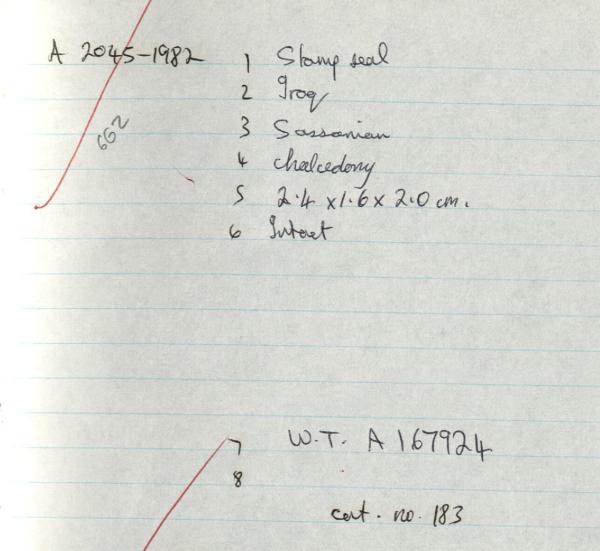 A 2045-1982 1 Stamp seal
2 Iraq
662
3 Sassanian
4 chalcedony
5 2.4 x 1.6 x 2.0 cm.
6 Intact
7 W.T. A 167924
8
cat. no. 183